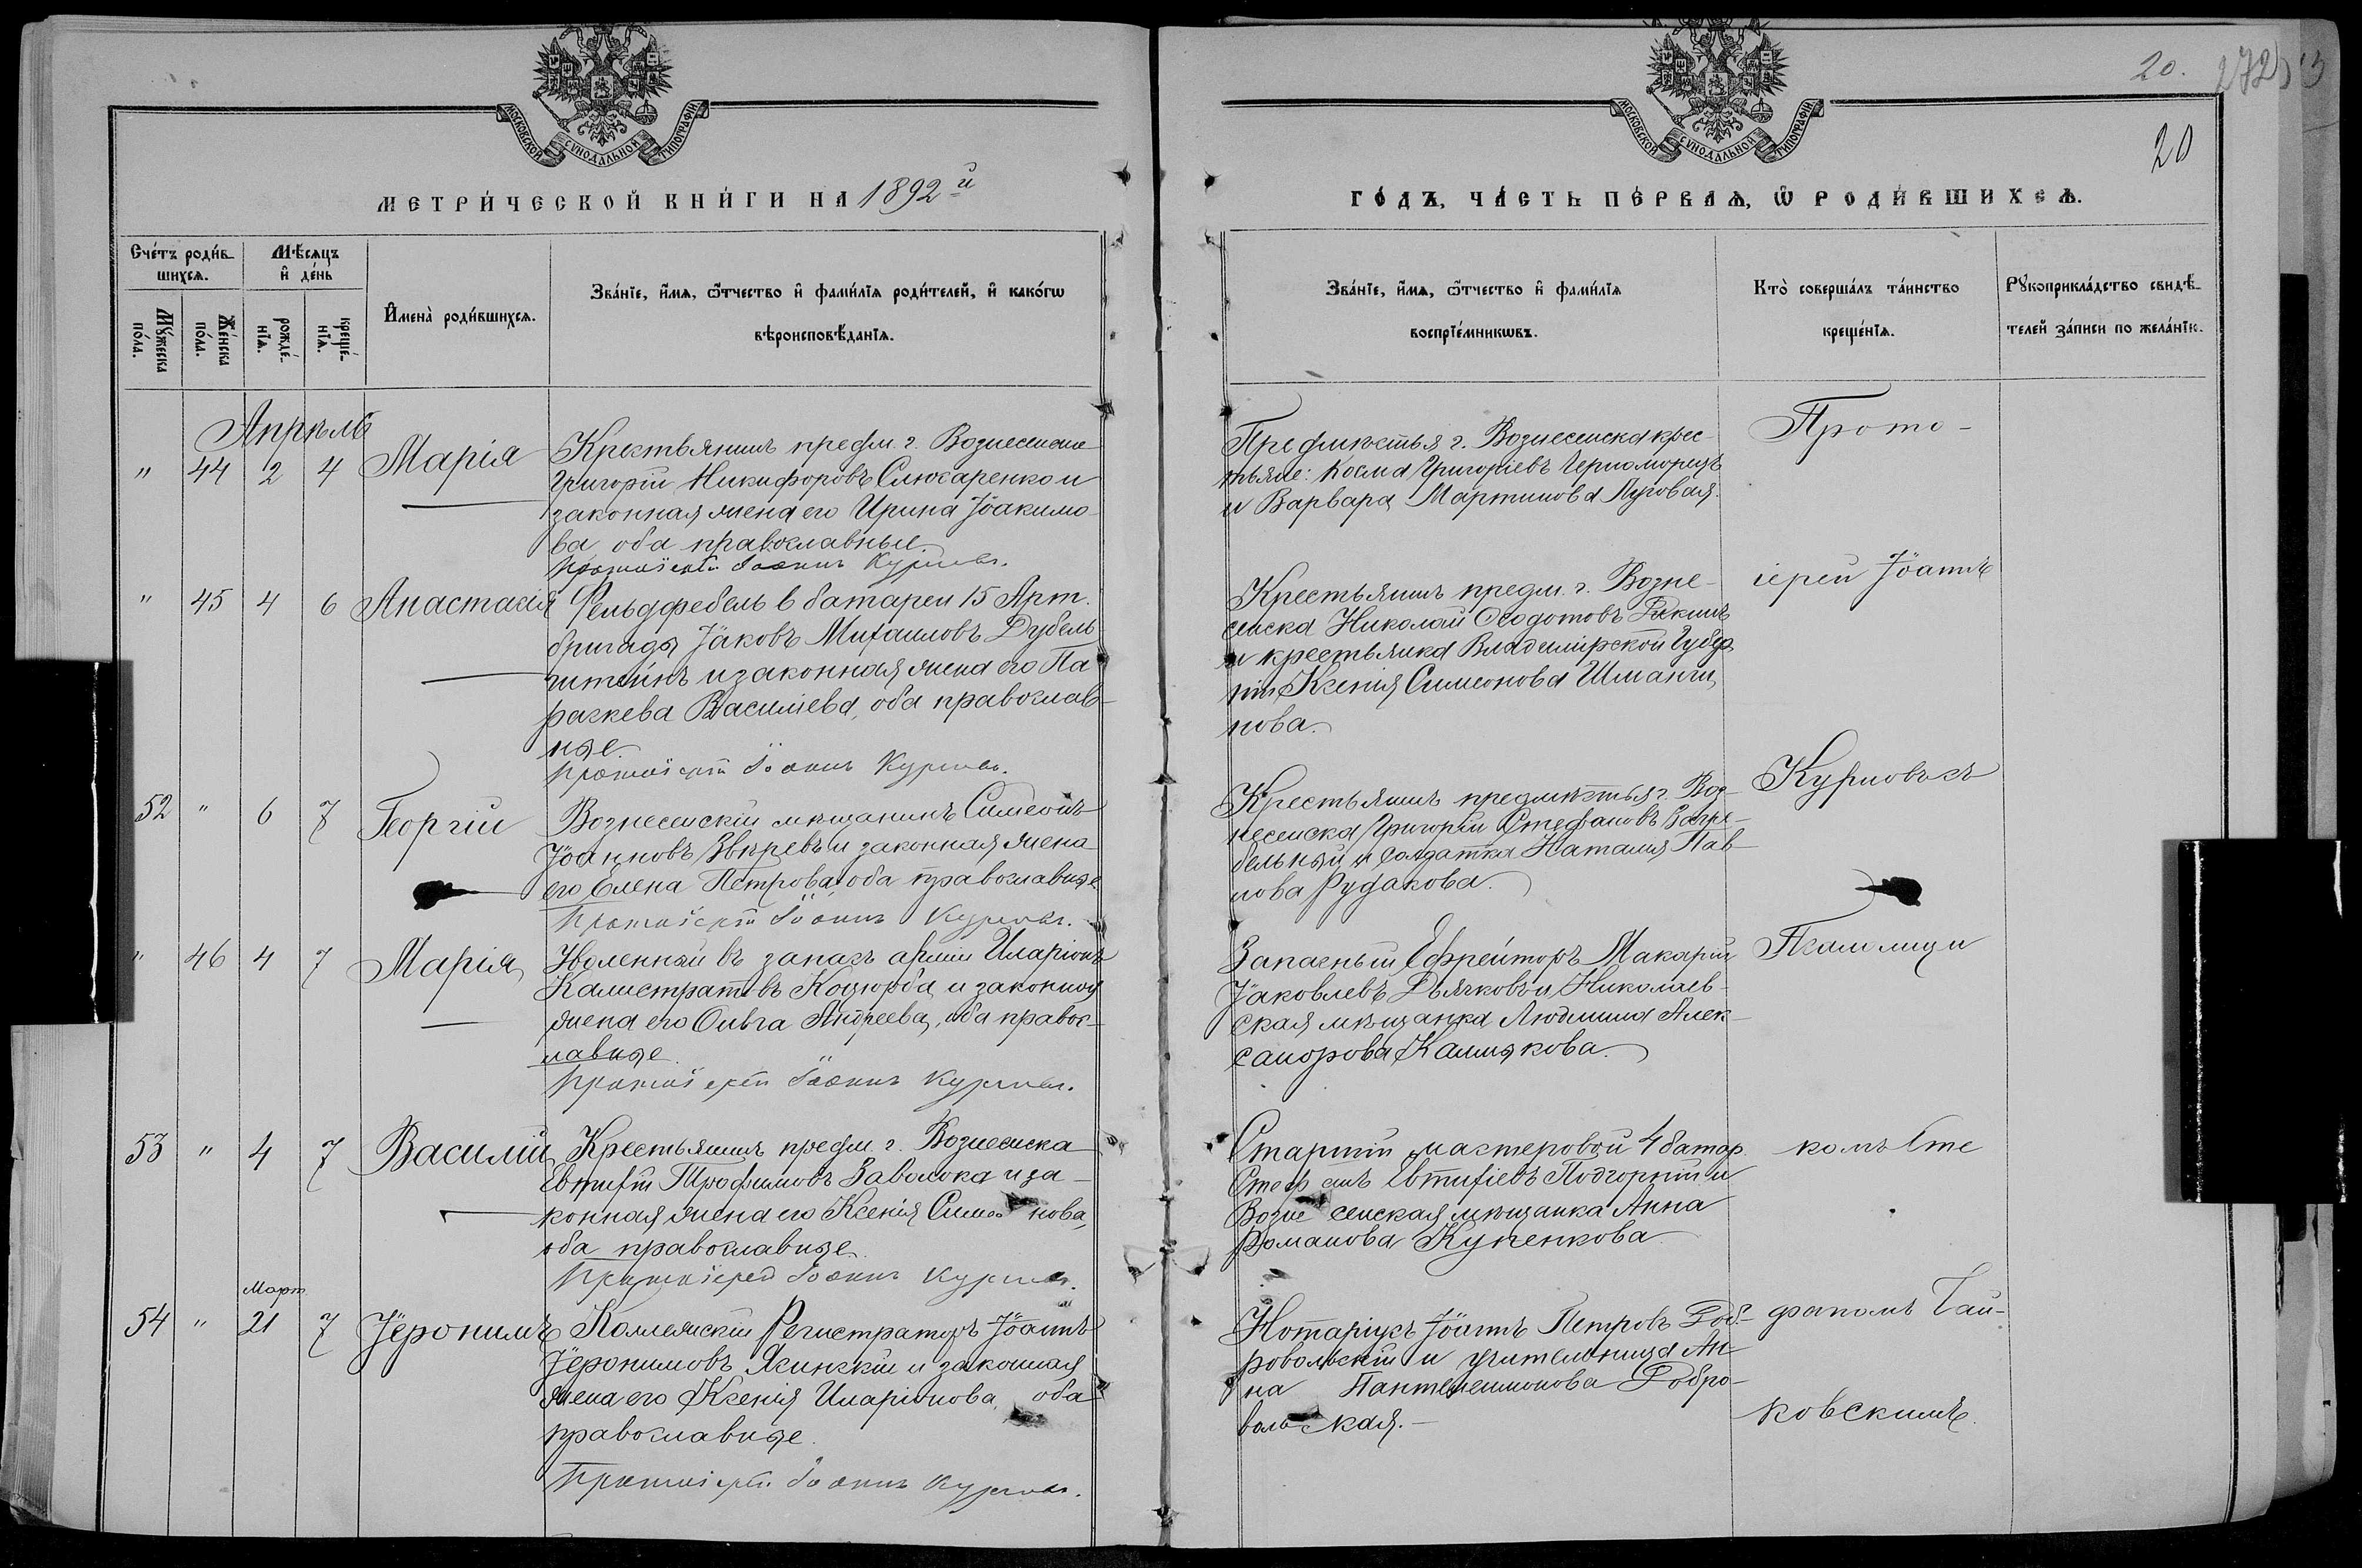 МОСКОВСКОЙ СѴНОДАЛЬНОЙ ТИПОГРАФІИ
МЕТРИ́ЧЕСКОЙ КНИ́ГИ НА 1892й
Сче́тъ роди́в-
шихсѧ.
Мꙋ́жеска
по́ла.
Же́нска
по́ла.
Мѣ́сѧцъ
и҆ де́нь
рожде́-
нїѧ.
креще́-
нїѧ.
И҆мена̀ роди́вшихсѧ.
Зва́нїе, и҆́мѧ, ѻ҆́тчество и҆ фами́лїѧ роди́телей, и҆ како́гѡ
вѣроисповѣ́данїѧ.
Апрѣль
" 44 2 4 Марія
Крестьянинъ предм. г. Вознесенска
Григорій Никифоровъ Слюсаренко и
законная жена его Ирина Іоакимо-
ва оба православные.
Протоіерей Іоаннъ Курловъ.
" 45 4 6 Анастасія
Фельдфебель 6 батареи 15 Арт.
бригады Іаковъ Михаиловъ Дубель
штейнъ и законная жена его Па
раскева Василіева, оба православ-
ные.
Протоіерей Іоаннъ Курловъ.
52 " 6 7 Георгій
Вознесенскій мѣщанинъ Симеонъ
Іоанновъ Звѣревъ и законная жена
его Елена Петрова оба православные
Протоіерей Іоаннъ Курловъ.
" 46 4 7 Марія
Уволенный въ запасъ арміи Иларіонъ
Калистратовъ Коцюрба и законная
жена его Ольга Андреева, оба правос-
лавные.
Протоіерей Іоаннъ Курловъ.
53 " 4 7 Василій
Крестьянинъ предм. г. Вознесенска
Евтифій Трофимовъ Заволока и за-
конная жена его Ксенія Симеонова,
оба православные.
Протоіерей Іоаннъ Курловъ.
Март.
54 " 21 7 Іеронимъ
Коллежскій Регистраторъ Іоаннъ
Іеронимовъ Ясинскій и законная
жена его Ксенія Иларіонова, оба
православные.
Протоіерей Іоаннъ Курловъ.
20.
272
20
МОСКОВСКОЙ СѴНОДАЛЬНОЙ ТИПОГРАФІИ
ГО́ДЪ, ЧА́СТЬ ПЕ́РВАѦ, Ѽ РОДИ́ВШИХСѦ.
Зва́нїе, и҆́мѧ, ѻ҆́тчество и҆ фами́лїѧ
воспрїе́мникѡвъ.
Кто̀ соверша́лъ та́инство
креще́нїѧ.
Рꙋкоприкла́дство свидѣ́-
телей за́писи по жела́нїю.
Предмѣстья г. Вознесенска крес-
тьяне: Косма Григоріевъ Черноморецъ
и Варвара Мартинова Луговая.
Крестьянинъ предм. г. Возне-
сенска Николай Ѳеодотовъ
и крестьянка Владимірской Губер
ніи Ксенія Симеонова
нова.
Крестьянинъ предмѣстья г. Воз-
несенска Григорій Стефановъ
бельный и солдатка Наталія Пав-
лова Рудакова.
Запасный Ефрейторъ Макарій
Іаковлевъ Дьячковъ и Николаев-
ская мѣщанка Людмила Алек-
сандрова Калмыкова.
Старшій мастеровой 4 батар.
Стефанъ Евтифіевъ Подгорній и
Вознесенская мѣщанка Анна
Романова Купенкова
Нотаріусъ Іоаннъ Петровъ Доб-
ровольскій и учительница Ан-
на Пантелеимонова Добро-
вольская.
Прото-
іерей Іоаннъ
Курловъ съ
Псаломщи
комъ Сте
фаномъ Чай-
ковскимъ.